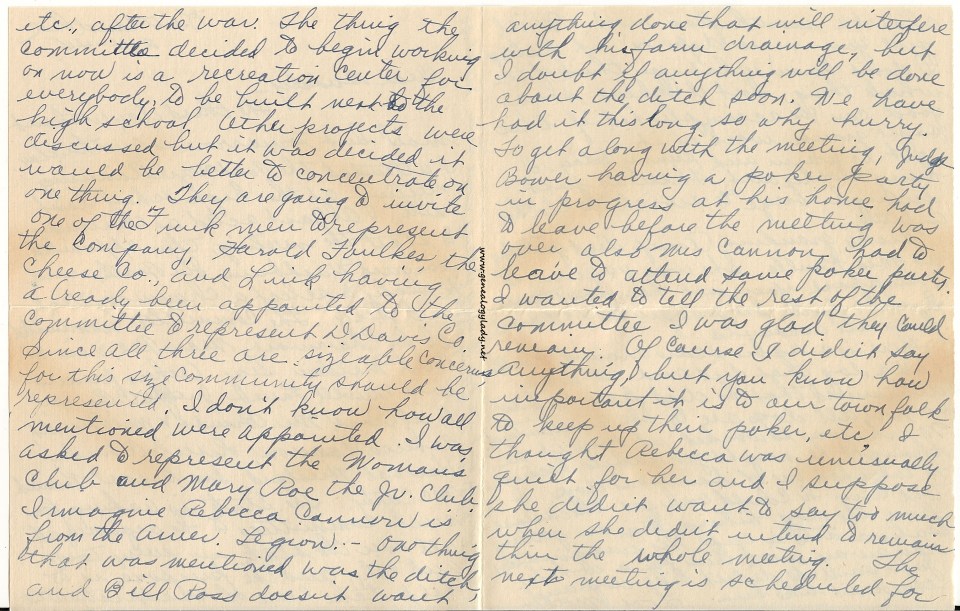 etc., after the war. The thing the
committee decided to begin working
on now is a recreation center for
everybody, to be built next to the
high school. Other projects were
discussed but it was decided it
would be better to concentrate on
one thing. They are going to invite
one of the Funk men to represent
the Company, Harold Faulkes the
Cheese Co., and Link having
already been appointed to the
committee to represent D. Davis Co.
Since all three are sizeable concerns
for this size community should be
represented. I don't know how all
mentioned were appointed. I was
asked to represent the Woman's
Club and Mary Roe the Jr. Club.
I imagine Rebecca Cannon is
from the Amer. Legion. – One thing
that was mentioned was the ditch,
and Bill Ross doesn't want
anything done that will interfere
with his farm drainage, but
I doubt if anything will be done
about the ditch soon. We have
had it this long so why hurry.
To get along with the meeting, Judge
Bower having a poker party
in progress at his home had
to leave before the meeting was
over also Mrs Cannon had to
leave to attend some poker party.
I wanted to tell the rest of the
committee I was glad they could
remain. Of course I didn't say
anything, but you know how
important it is to our town folk
to keep up their poker, etc. I
thought Rebecca was unusually
quiet for her and I suppose
she didn't want to say too much
when she didn't intend to remain
thru the whole meeting. The
next meeting is scheduled for
www.genealogylady.net